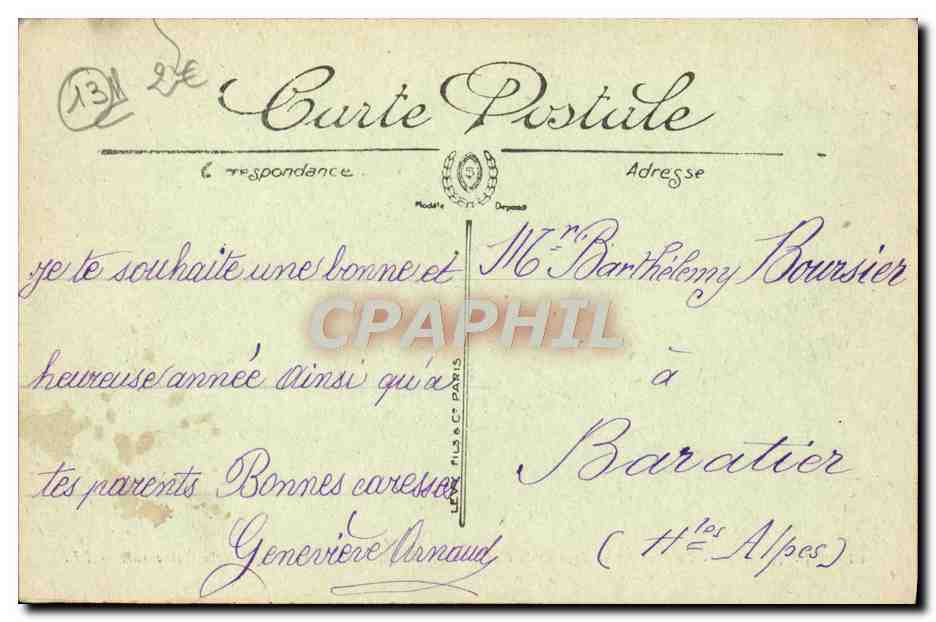 131 2€
Carte Postale
Correspondance. Adresse
Modèle Déposé
Je te souhaite une bonne et
heureuse année ainsi qu'à
tes parents Bonnes caresses
Geneviève Arnaud
LEVY FILS & Cie PARIS
Mr Barthélemy Boursier
à
Baratier
(Htes Alpes)
CPAPHIL